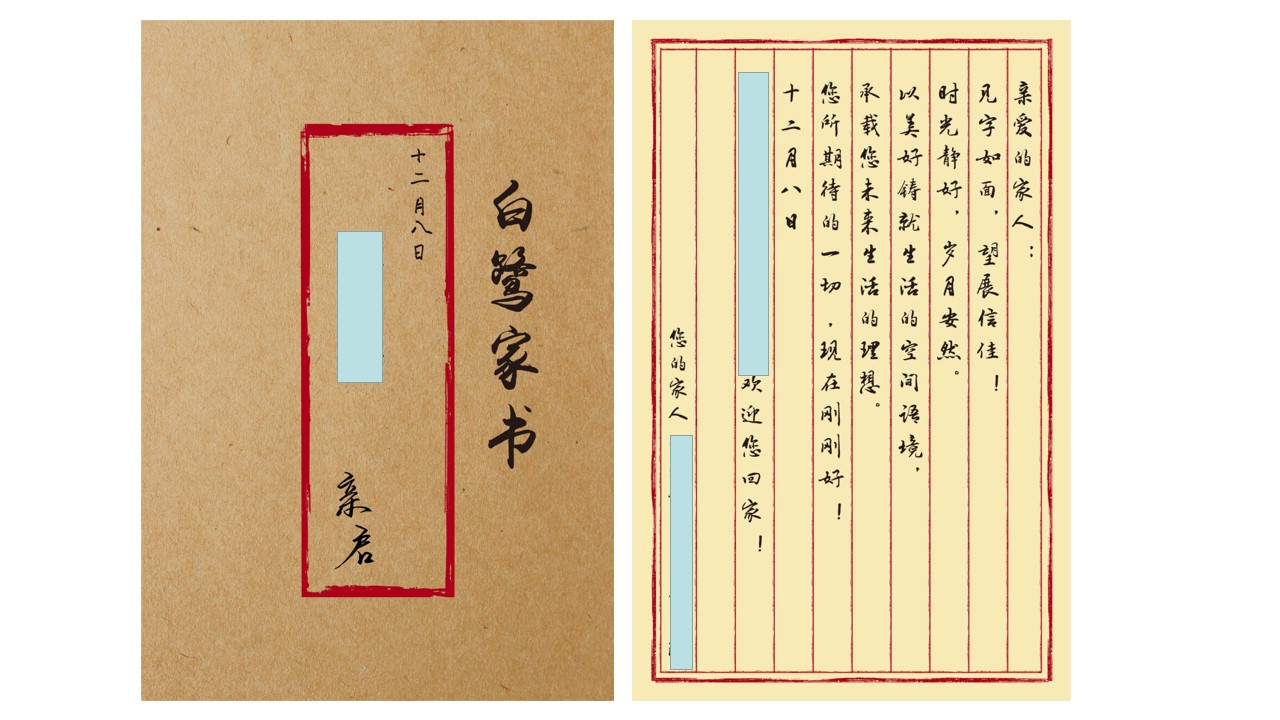 白鹭家书
十二月八日
亲启
亲爱的家人：
见字如面，望展信佳！
时光静好，岁月安然。
以美好铸就生活的空间语境，
承载您未来生活的理想。
您所期待的一切，现在刚刚好！
十二月八日
欢迎您回家！
您的家人